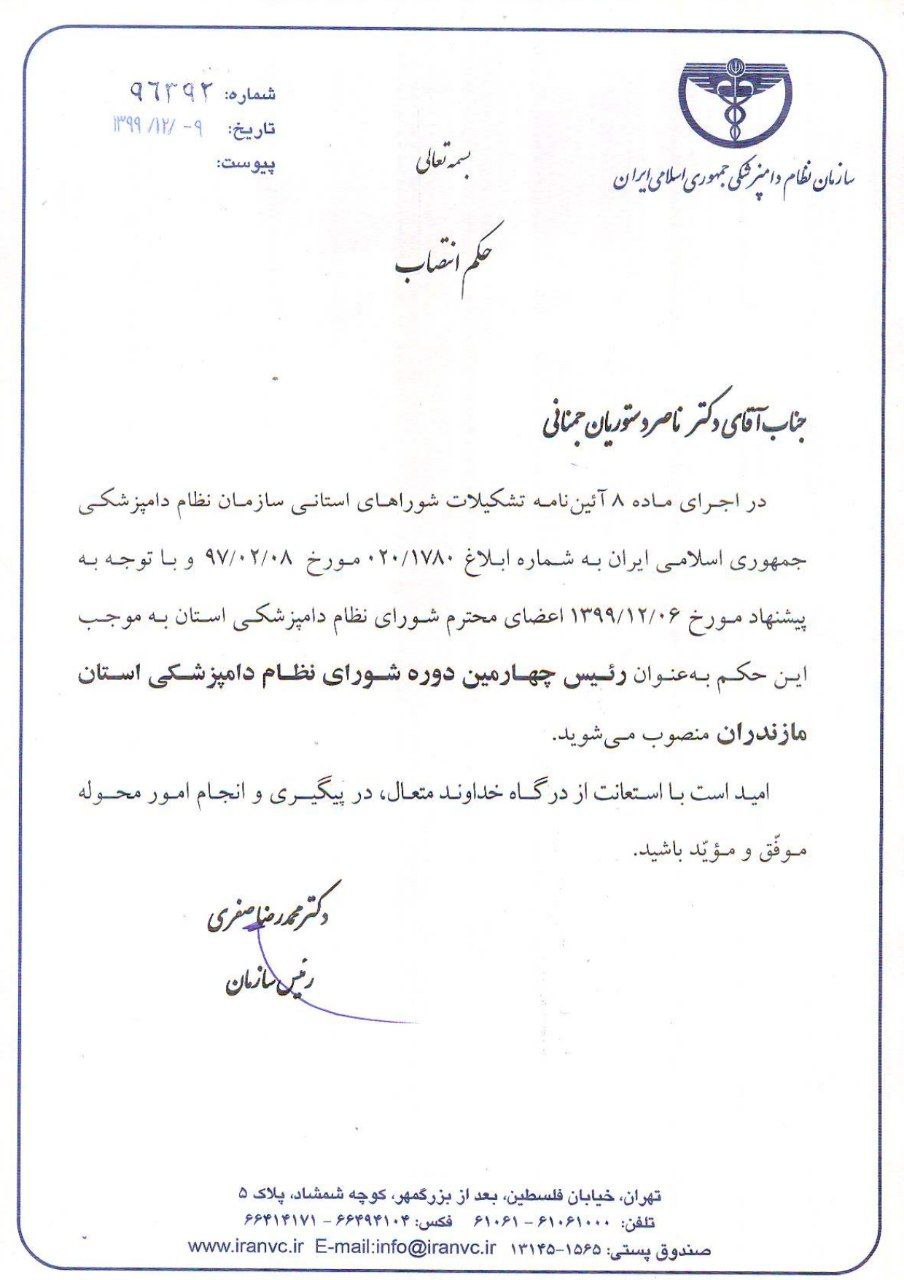 سازمان نظام دامپزشکی جمهوری اسلامی ایران
شماره: ۹۶۳۹۲
تاریخ: ۱۳۹۹/۱۲/ -۹
پیوست:
بسمه تعالی
حکم انتصاب
جناب آقای دکتر ناصر دستوریان جمنانی
در اجرای ماده ۸ آئین‌نامه تشکیلات شوراهای استانی سازمان نظام دامپزشکی
جمهوری اسلامی ایران به شماره ابلاغ ۰۲۰/۱۷۸۰ مورخ ۹۷/۰۲/۰۸ و با توجه به
پیشنهاد مورخ ۱۳۹۹/۱۲/۰۶ اعضای محترم شورای نظام دامپزشکی استان به موجب
این حکم به‌عنوان رئیس چهارمین دوره شورای نظام دامپزشکی استان
مازندران منصوب می‌شوید.
امید است با استعانت از درگاه خداوند متعال، در پیگیری و انجام امور محوله
موفّق و مؤیّد باشید.
دکتر محمدرضا صفری
رئیس سازمان
تهران، خیابان فلسطین، بعد از بزرگمهر، کوچه شمشاد، پلاک ۵
تلفن: ۶۱۰۶۱۰۰۰ - ۶۱۰۶۱ فکس: ۶۶۴۹۴۱۰۴ - ۶۶۴۱۴۱۷۱
صندوق پستی: ۱۵۶۵-۱۳۱۴۵ www.iranvc.ir E-mail:info@iranvc.ir